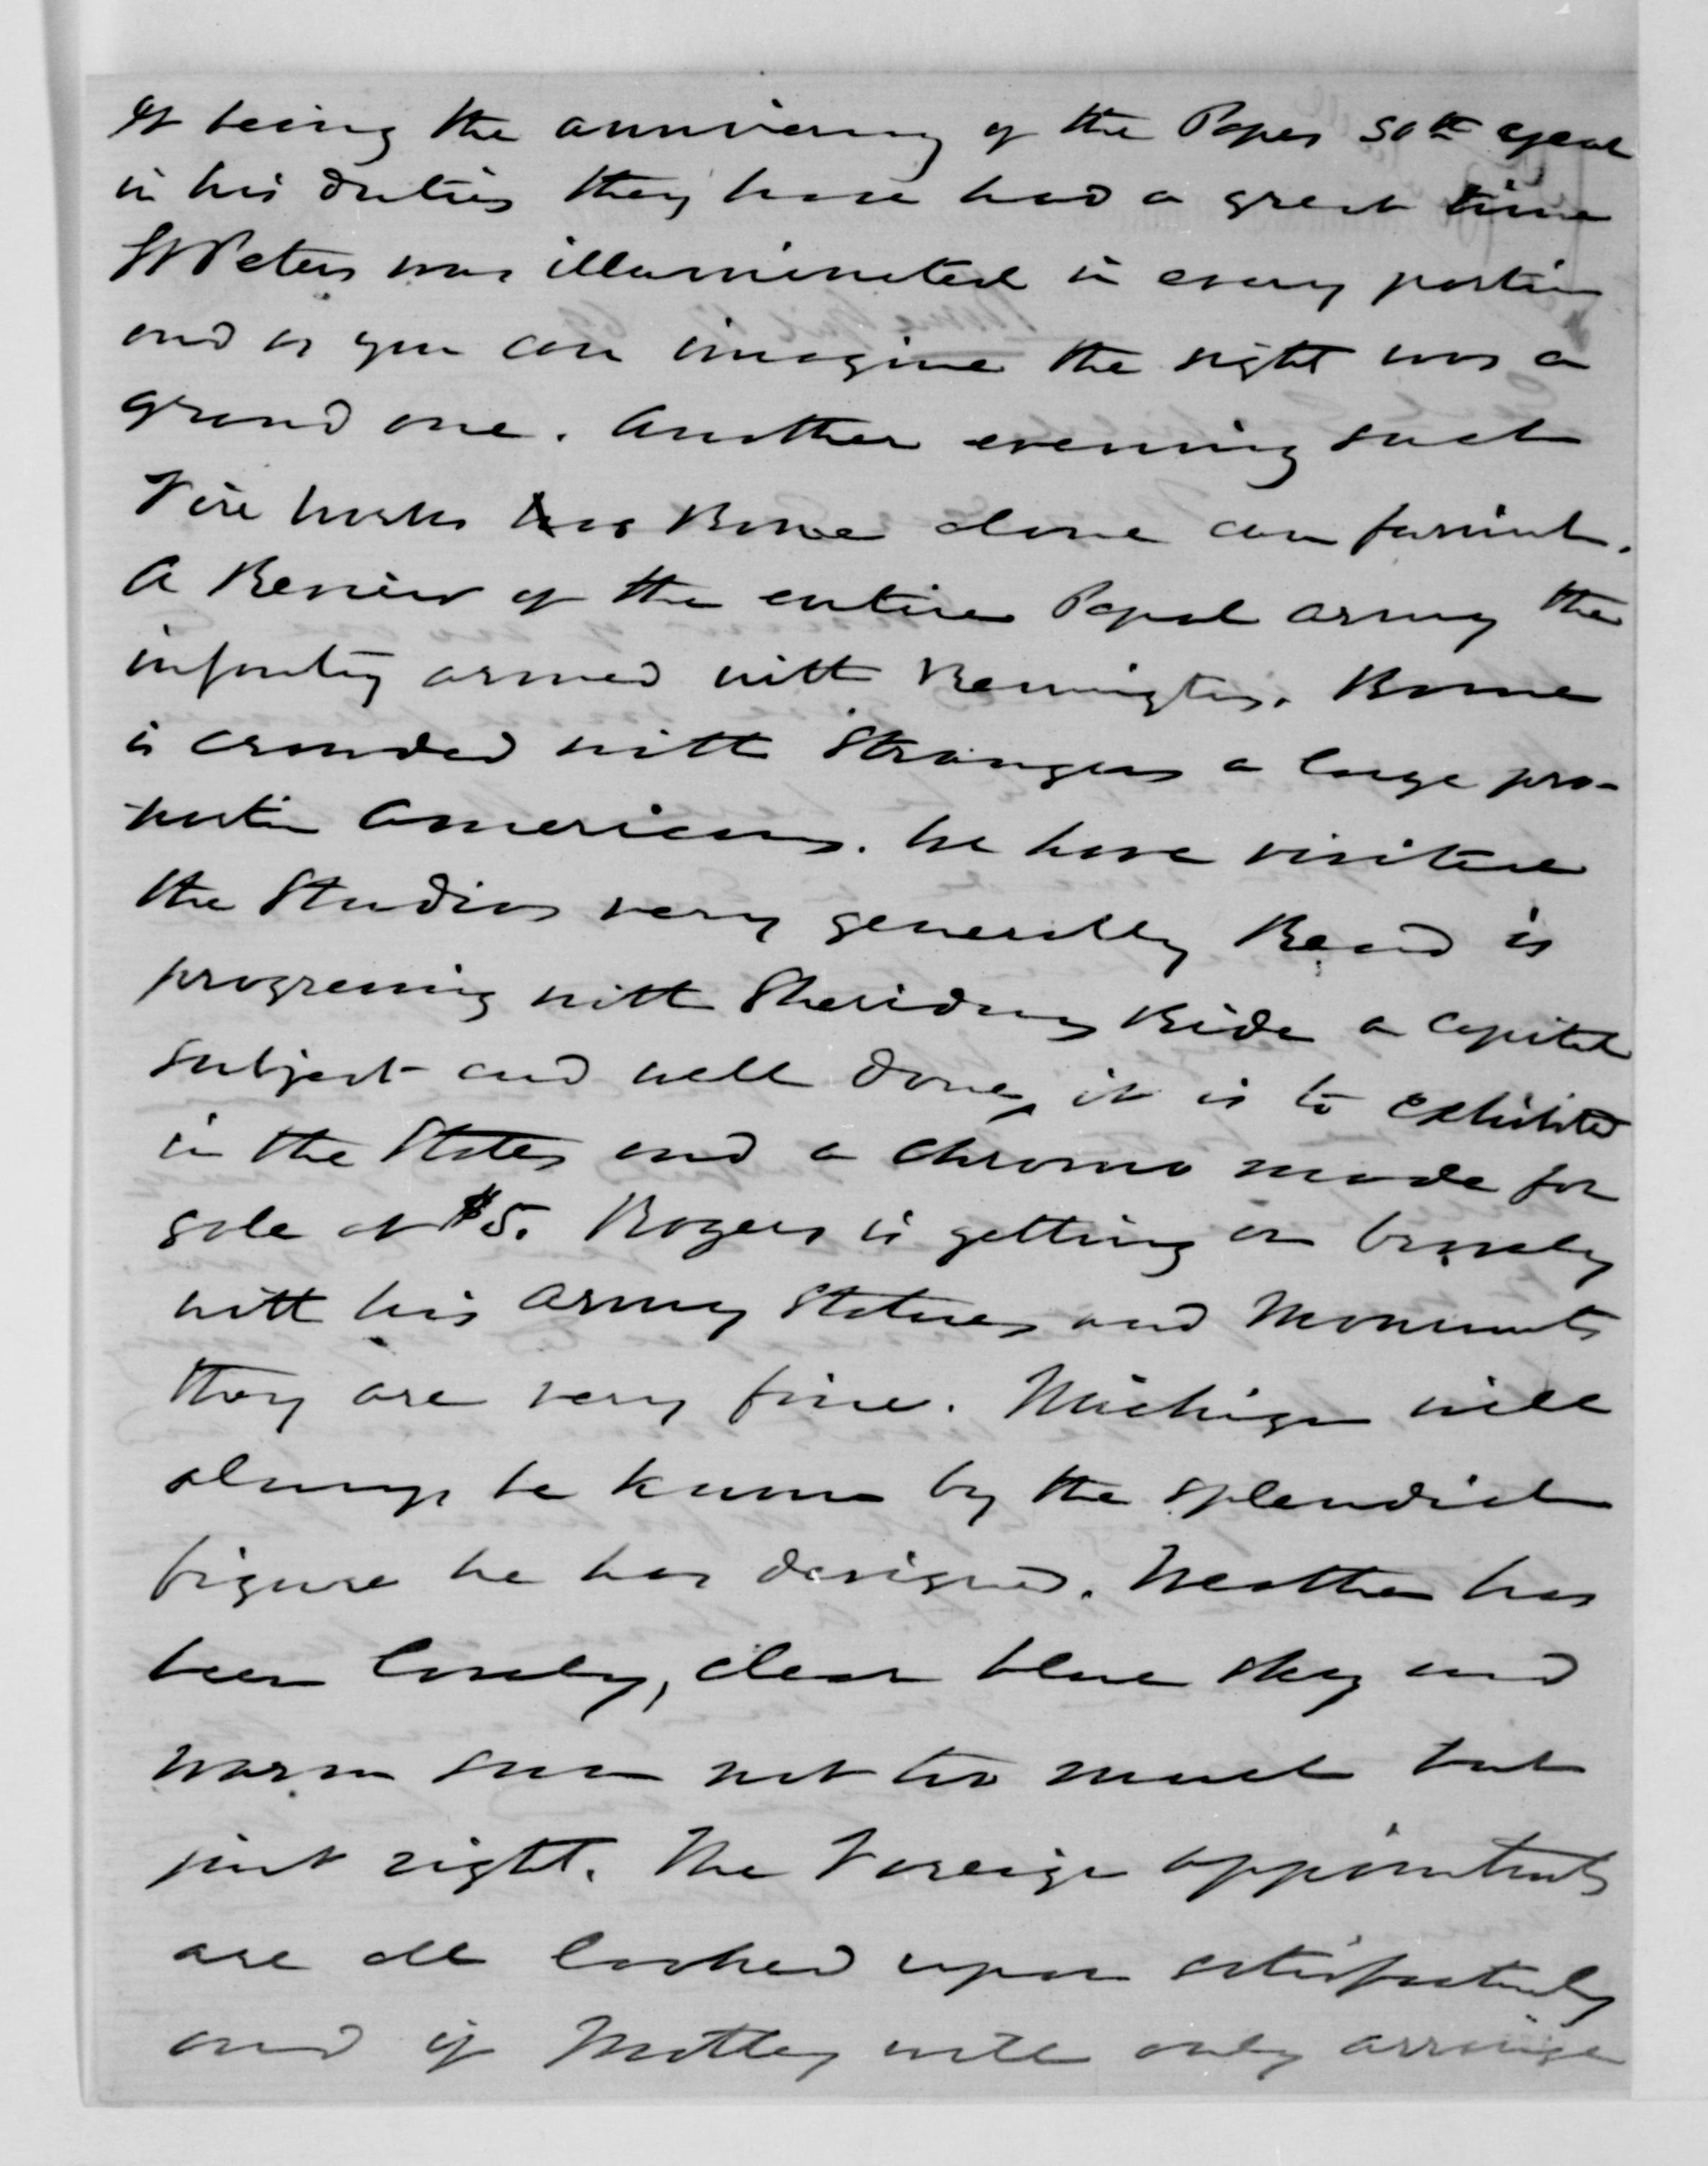 It being the anniversary of the Popes 50th year
in his duties they have had a great time
St Peters was illuminated in every portion
and as you can imagine the sight was a
grand one. Another evening such
Fire works as Rome alone can furnish.
A Review of the entire Papal army the
infantry armed with Remingtons. Rome
is crowded with strangers a large pro-
portion Americans. We have visited
the Studios very generally Read is
progressing with Sheridans Ride a capital
subject and well done, it is to exhibited
in the States and a chromo made for
sale at $5. Rogers is getting on bravely
with his army statues and Monuments
they are very fine. Michigan will
always be known by the splendid
figure he has designed. Weather has
been lovely, clear blue sky and
warm sun not too much but
just right. The Foreign appointments
are all looked upon satisfactorily
and if Motley will only arrange